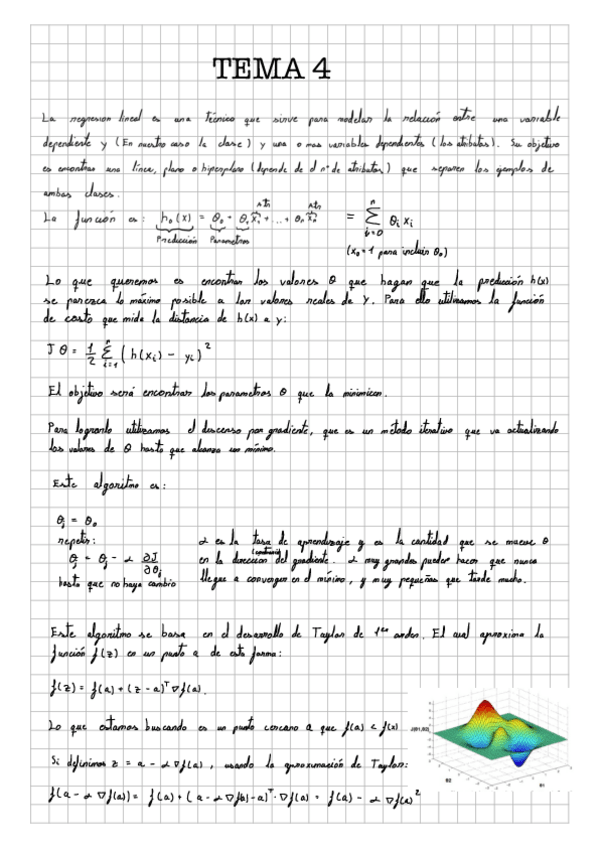 TEMA 4
La regresion lineal es una técnica que sirve para modelar la relación entre una variable
dependiente y (En nuestro caso la clase) y una o mas variables dependientes (los atributos). Su objetivo
es encontrar una línea, plano o hiperplano (depende de d nº de atributos) que separen los ejemplos de
ambas clases.
La función es: h₀(x) = θ₀ + θ₁x₁ + ... + θₙxₙ = Σ θᵢ xᵢ
Predicción Parametros (x₀=1 para incluir θ₀)
Lo que queremos es encontrar los valores θ que hagan que la predicción h(x)
se parezca lo máximo posible a los valores reales de y. Para ello utilizamos la función
de costo que mida la distancia de h(x) a y:
J θ = 1/2 Σ (h(xᵢ) - yᵢ)²
El objetivo será encontrar los parametros θ que la minimicen.
Para lograrlo utilizamos el descenso por gradiente, que es un método iterativo que va actualizando
los valores de θ hasta que alcanza un mínimo.
Este algoritmo es:
θⱼ = θ₀
repetir:
θⱼ = θⱼ - α ∂J/∂θⱼ
hasta que no haya cambio
α es la tasa de aprendizaje y es la cantidad que se mueve θ
en la dirección (contraria) del gradiente. α muy grandes pueden hacer que nunca
llegue a converger en el mínimo, y muy pequeñas que tarde mucho.
Este algoritmo se basa en el desarrollo de Taylor de 1er orden. El cual aproxima la
función f(z) en un punto a de esta forma:
f(z) = f(a) + (z - a)ᵀ ∇f(a).
Lo que estamos buscando es un punto cercano a que f(a) < f(z)
Si definimos z = a - α ∇f(a), usando la aproximación de Taylor:
f(a - α ∇f(a)) = f(a) + (a - α ∇f(a) - a)ᵀ · ∇f(a) = f(a) - α ∇f(a)²